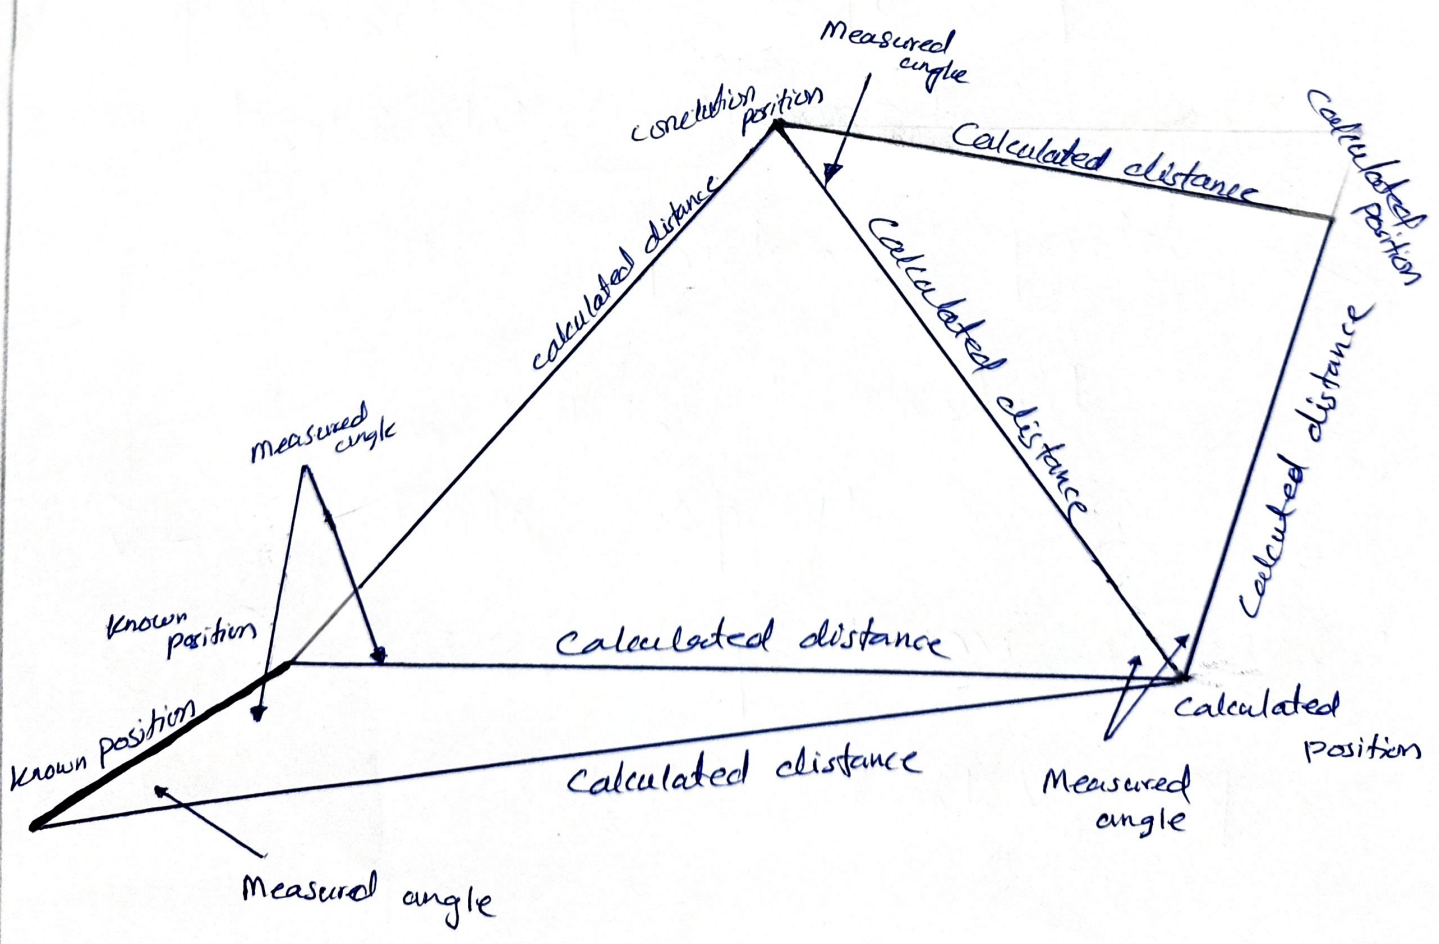 Measured
angle
conclution
position
Calculated distance
Calculated
position
calculated distance
Calculated distance
Calculated distance
measured
angle
Known
position
Calculated distance
Known position
Calculated
position
Calculated distance
Measured
angle
Measured angle